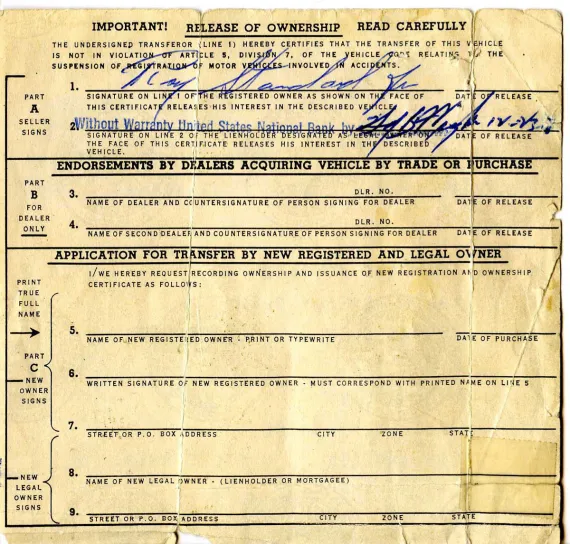 IMPORTANT! RELEASE OF OWNERSHIP READ CAREFULLY
THE UNDERSIGNED TRANSFEROR (LINE 1) HEREBY CERTIFIES THAT THE TRANSFER OF THIS VEHICLE
IS NOT IN VIOLATION OF ARTICLE 5, DIVISION 7, OF THE VEHICLE CODE RELATING TO THE
SUSPENSION OF REGISTRATION OF MOTOR VEHICLES INVOLVED IN ACCIDENTS.
PART
A
SELLER
SIGNS
1. Ray
SIGNATURE ON LINE 1 OF THE REGISTERED OWNER AS SHOWN ON THE FACE OF DATE OF RELEASE
THIS CERTIFICATE RELEASES HIS INTEREST IN THE DESCRIBED VEHICLE.
2. Without Warranty United States National Bank by
SIGNATURE ON LINE 2 OF THE LIENHOLDER DESIGNATED AS LEGAL OWNER ON DATE OF RELEASE
THE FACE OF THIS CERTIFICATE RELEASES HIS INTEREST IN THE DESCRIBED
VEHICLE.
ENDORSEMENTS BY DEALERS ACQUIRING VEHICLE BY TRADE OR PURCHASE
PART
B
FOR
DEALER
ONLY
3. DLR. NO.
NAME OF DEALER AND COUNTERSIGNATURE OF PERSON SIGNING FOR DEALER DATE OF RELEASE
4. DLR. NO.
NAME OF SECOND DEALER AND COUNTERSIGNATURE OF PERSON SIGNING FOR DEALER DATE OF RELEASE
APPLICATION FOR TRANSFER BY NEW REGISTERED AND LEGAL OWNER
I/WE HEREBY REQUEST RECORDING OWNERSHIP AND ISSUANCE OF NEW REGISTRATION AND OWNERSHIP
CERTIFICATE AS FOLLOWS:
PRINT
TRUE
FULL
NAME
5.
NAME OF NEW REGISTERED OWNER - PRINT OR TYPEWRITE DATE OF PURCHASE
PART
C
NEW
OWNER
SIGNS
6.
WRITTEN SIGNATURE OF NEW REGISTERED OWNER - MUST CORRESPOND WITH PRINTED NAME ON LINE 5
7.
STREET OR P.O. BOX ADDRESS CITY ZONE STATE
NEW
LEGAL
OWNER
SIGNS
8.
NAME OF NEW LEGAL OWNER - (LIENHOLDER OR MORTGAGEE)
9.
STREET OR P.O. BOX ADDRESS CITY ZONE STATE